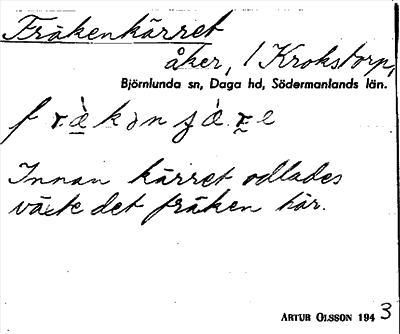 Fräkenkärret
åker, / Krokstorp,
Björnlunda sn, Daga hd, Södermanlands län.
Innan kärret odlades
växte det fräken här.
ARTUR OLSSON 1943